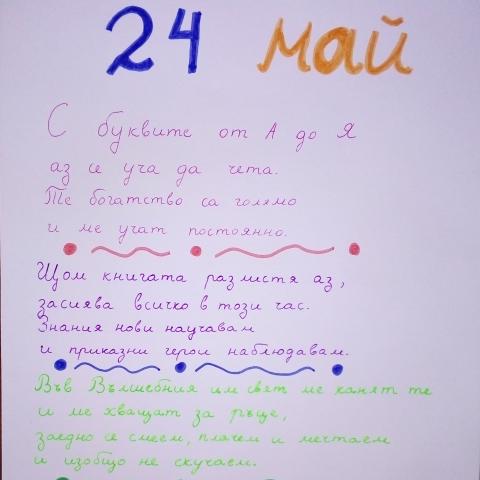 24 май
С буквите от А до Я
аз се уча да чета.
Те богатство са голямо
и ме учат постоянно.
Щом книгата разлистя аз,
засиява всичко в този час.
Знания нови научавам
и приказни герои наблюдавам.
Във Вълшебния им свят ме канят те
и ме хващат за ръце,
заедно се смеем, плачем и мечтаем
и изобщо не скучаем.